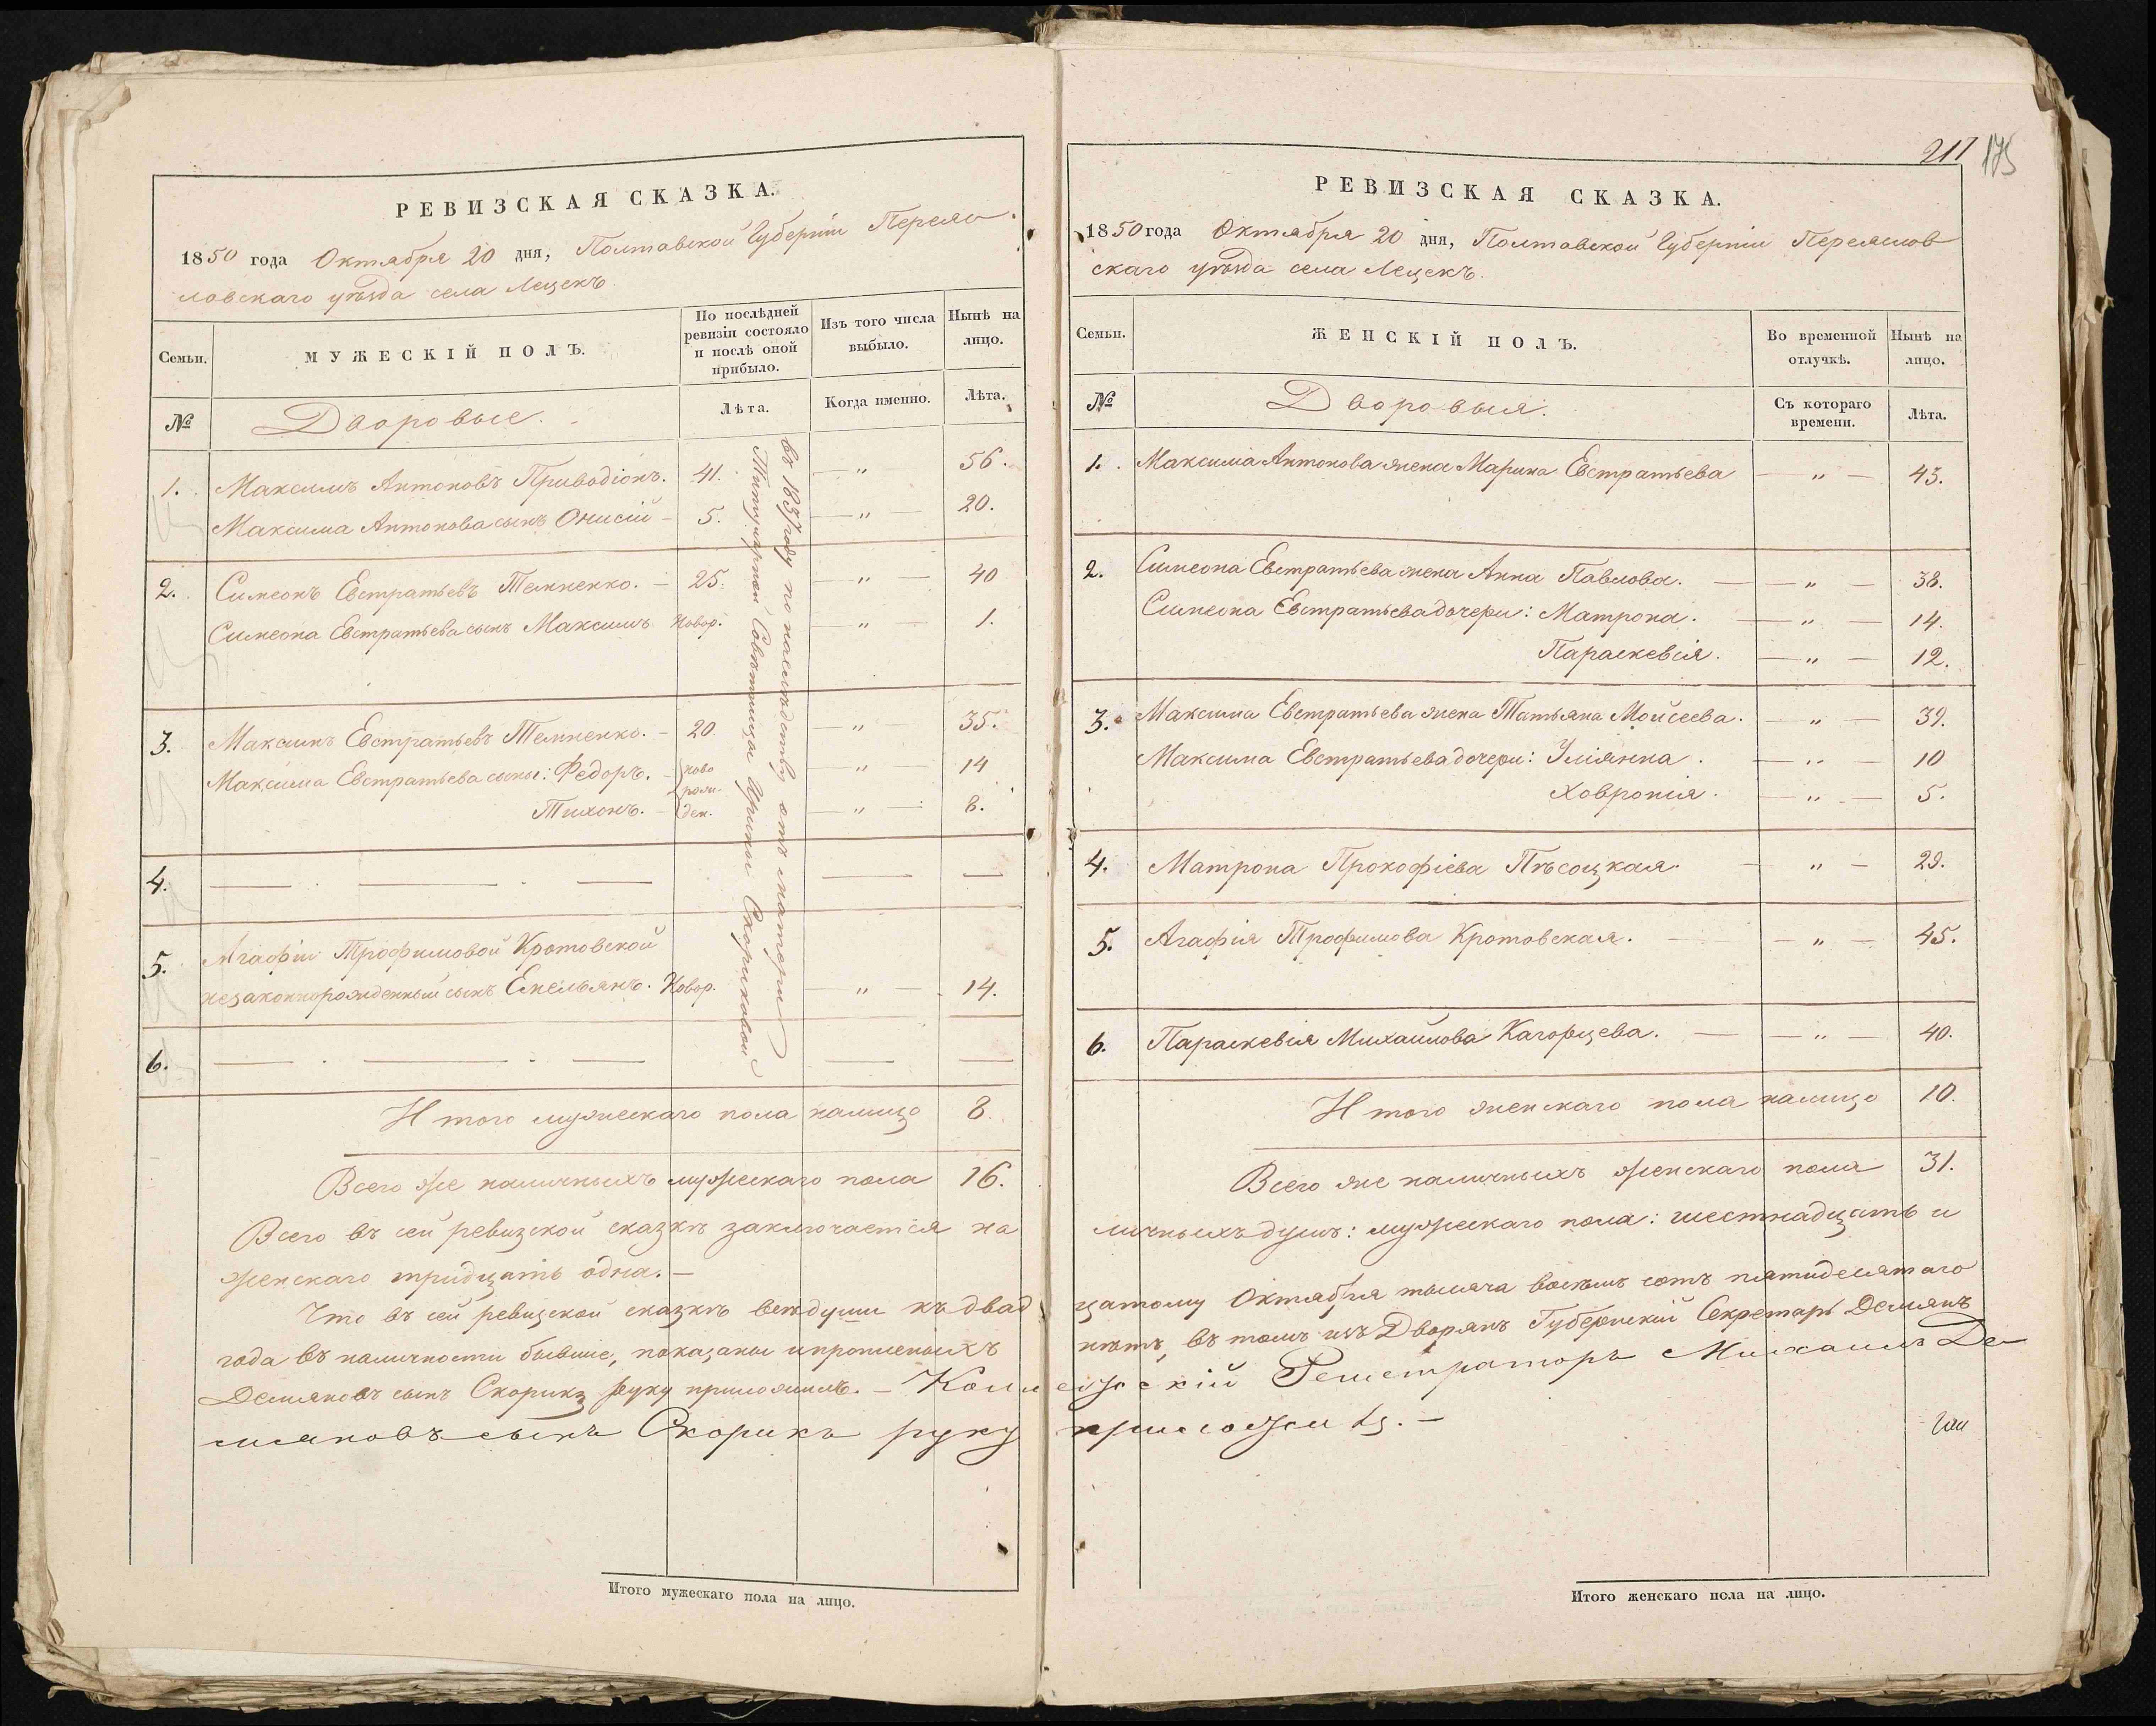 РЕВИЗСКАЯ СКАЗКА.
1850 года Октября 20 дня, Полтавской Губерніи Переяс-
ловскаго уѣзда села Лецекъ.
Семьи.
МУЖЕСКІЙ ПОЛЪ.
По послѣдней ревизіи состояло и послѣ оной прибыло.
Изъ того числа выбыло.
Нынѣ на лицо.
№
Дворовые.
Лѣта.
Когда именно.
Лѣта.
1. Максимъ Антоновъ Приводіонъ. 41. — „ — 56.
Максима Антонова сынъ Онисій — 5. — „ — 20.
2. Симеонъ Евстратьевъ Темненко. — 25. — „ — 40
Симеона Евстратьева сынъ Максимъ. Новор. — „ — 1.
3. Максимъ Евстратьевъ Темненко. — 20. — „ — 35.
Максима Евстратьева сыны: Ѳедоръ. — ново — „ — 14
рож-
Тихонъ. — ден. — „ — 8.
4. — . — . — — —
5. Агафіи Трофимовой Кротовской
незаконнорожденный сынъ Емельянъ. Новор. — „ — 14.
6. — . — . — — —
въ 1837 году по наслѣдству отъ матери
Титулярной Совѣтницы Ирины Скориковой
Итого мужескаго пола налицо 8.
Всего же наличныхъ мужескаго пола 16.
Всего въ сей ревизской сказкѣ заключается на
женскаго тридцать одна. —
Что въ сей ревизской сказкѣ всѣ души къ двад
года въ наличности бывшіе, показаны и прописныхъ
Демяновъ сынъ Скорикъ руку приложилъ. — Колл
мяновъ сынъ Скорикъ руку
Итого мужескаго пола на лицо.
217 175
РЕВИЗСКАЯ СКАЗКА.
1850 года Октября 20 дня, Полтавской Губерніи Переяслов
скаго уѣзда села Лецекъ.
Семьи.
ЖЕНСКІЙ ПОЛЪ.
Во временной отлучкѣ.
Нынѣ на лицо.
№
Дворовыя.
Съ котораго времени.
Лѣта.
1. Максима Антонова жена Марина Евстратьева — „ — 43.
2. Симеона Евстратьева жена Анна Павлова. — — „ — 38.
Симеона Евстратьева дочери: Матрона. — „ — 14.
Параскевія. — „ — 12.
3. Максима Евстратьева жена Татьяна Мойсеева. — „ — 39.
Максима Евстратьева дочери: Уліянна. — „ — 10
Ховронія. — „ — 5.
4. Матрона Прокофіева Пѣсоцкая. — „ — 29.
5. Агафія Трофимова Кротовская. — — „ — 45.
6. Параскевія Михайлова Кагорцева. — — „ — 40.
Итого женскаго пола налицо 10.
Всего же наличныхъ женскаго пола 31.
личныхъ душъ: мужескаго пола: шестнадцать и
цатому Октября тысяча восемь сотъ пятидесятаго
нѣтъ, въ томъ изъ Дворянъ Губернскій Секретарь Демянъ
ежскій Регистраторъ Михаилъ Де
приложилъ. —
Итого женскаго пола на лицо.